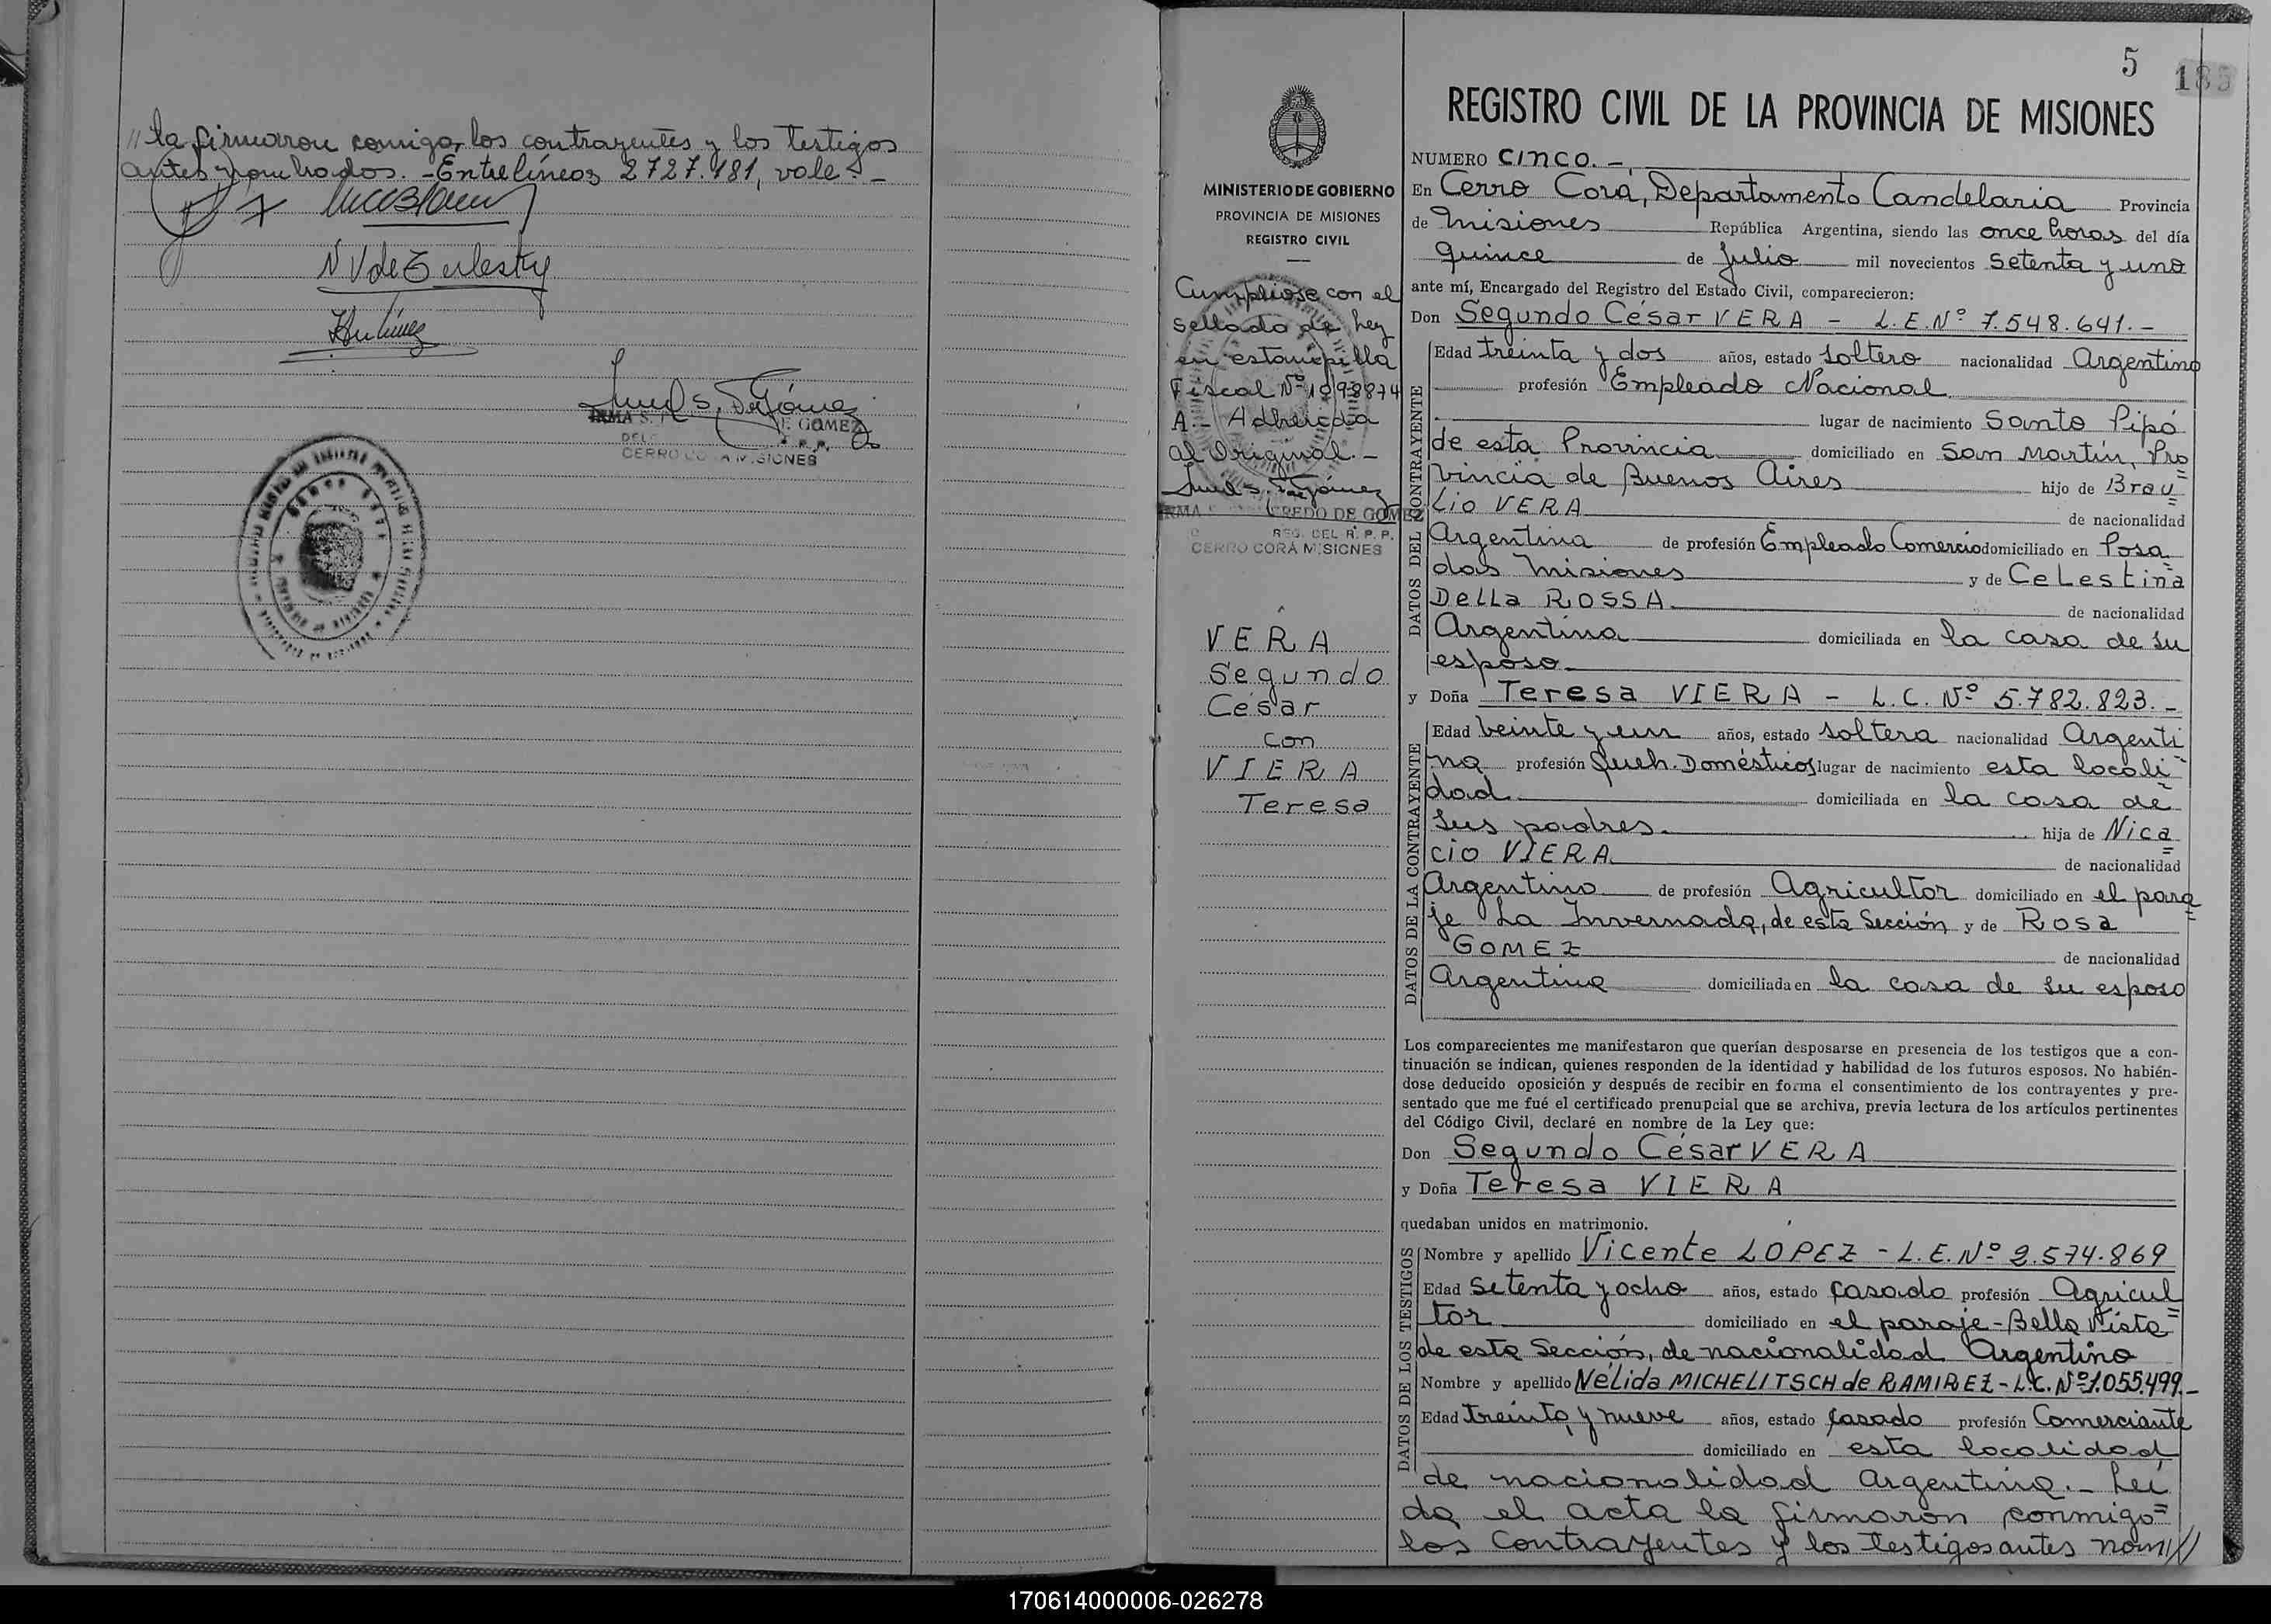 // la firmaron comigo, los contrayentes y los testigos
antes nombrados. - Entrelíneas 2727.181, vale. -
CERRO CORÁ MISIONES
5
185
REGISTRO CIVIL DE LA PROVINCIA DE MISIONES
MINISTERIO DE GOBIERNO
PROVINCIA DE MISIONES
REGISTRO CIVIL
Cumpliose con el
sellado de ley
en estampilla
Fiscal Nº 1098874
A - Adherida
al Original. -
REG. DEL R. P. P.
CERRO CORÁ MISIONES
VERA
Segundo
César
con
VIERA
Teresa
NUMERO CINCO. -
En Cerro Corá, Departamento Candelaria Provincia
de Misiones República Argentina, siendo las once horas del día
quince de Julio mil novecientos setenta y uno
ante mí, Encargado del Registro del Estado Civil, comparecieron:
Don Segundo César VERA - L.E. Nº 7.548.641. -
DATOS DEL CONTRAYENTE
Edad treinta y dos años, estado soltero nacionalidad Argentino
profesión Empleado Nacional
lugar de nacimiento Santo Pipó
de esta Provincia domiciliado en San Martín, Pro
vincia de Buenos Aires hijo de Brau
lio VERA de nacionalidad
Argentina de profesión Empleado Comercio domiciliado en Posa
das Misiones y de Celestina
Della ROSSA de nacionalidad
Argentina domiciliada en la casa de su
esposo
y Doña Teresa VIERA - L.C. Nº 5.782.823. -
DATOS DE LA CONTRAYENTE
Edad beinte y un años, estado soltera nacionalidad Argenti
na profesión Queh. Domésticos lugar de nacimiento esta locali
dad domiciliada en la casa de
sus padres. hija de Nica
cio VIERA de nacionalidad
Argentino de profesión Agricultor domiciliado en el para
je La Invernada, de esta Sección y de Rosa
GOMEZ de nacionalidad
Argentina domiciliada en la casa de su esposo
Los comparecientes me manifestaron que querían desposarse en presencia de los testigos que a con-
tinuación se indican, quienes responden de la identidad y habilidad de los futuros esposos. No habién-
dose deducido oposición y después de recibir en forma el consentimiento de los contrayentes y pre-
sentado que me fué el certificado prenupcial que se archiva, previa lectura de los artículos pertinentes
del Código Civil, declaré en nombre de la Ley que:
Don Segundo César VERA
y Doña Teresa VIERA
quedaban unidos en matrimonio.
DATOS DE LOS TESTIGOS
Nombre y apellido Vicente LOPEZ - L.E. Nº 2.574.869
Edad setenta y ocho años, estado casado profesión Agricul
tor domiciliado en el paraje - Bella Vista
de esta Sección, de nacionalidad Argentino
Nombre y apellido Nélida MICHELITSCH de RAMIREZ - L.C. Nº 1.055.499. -
Edad treinta y nueve años, estado casado profesión Comerciante
domiciliado en esta localidad
de nacionalidad argentina. - Leí
da el acta la firmaron conmigo
los contrayentes y los testigos antes nom//
170614000006-026278